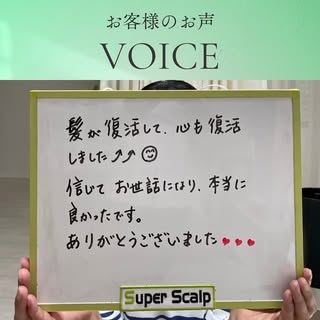 お客様のお声
VOICE
髪が復活して、心も復活
しました⤴⤴☺
信じて お世話になり、本当に
良かったです。
ありがとうございました♥♥♥
Super Scalp